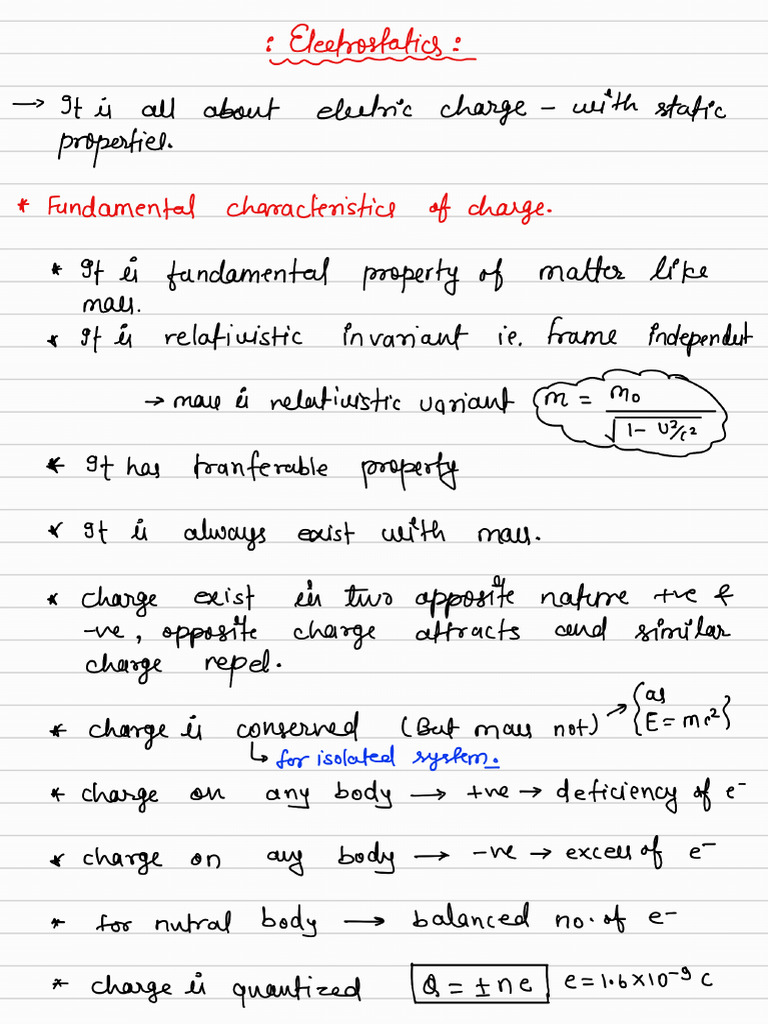 : Electrostatics :
→ It is all about electric charge - with static
properties.
* Fundamental characteristics of charge.
* It is fundamental property of matter like
mass.
* It is relativistic invariant ie. frame independent
→ mass is relativistic variant m = m₀ / √(1 - v²/c²)
* It has tranferable property
* It is always exist with mass.
* charge exist in two opposite nature +ve &
-ve, opposite charge attracts and similar
charge repel.
* charge is conserved (But mass not) → {as E = mc²}
↳ for isolated system.
* charge on any body → +ve → deficiency of e⁻
* charge on any body → -ve → excess of e⁻
* for nutral body → balanced no. of e⁻
* charge is quantized Q = ± n e e = 1.6 × 10⁻⁹ C